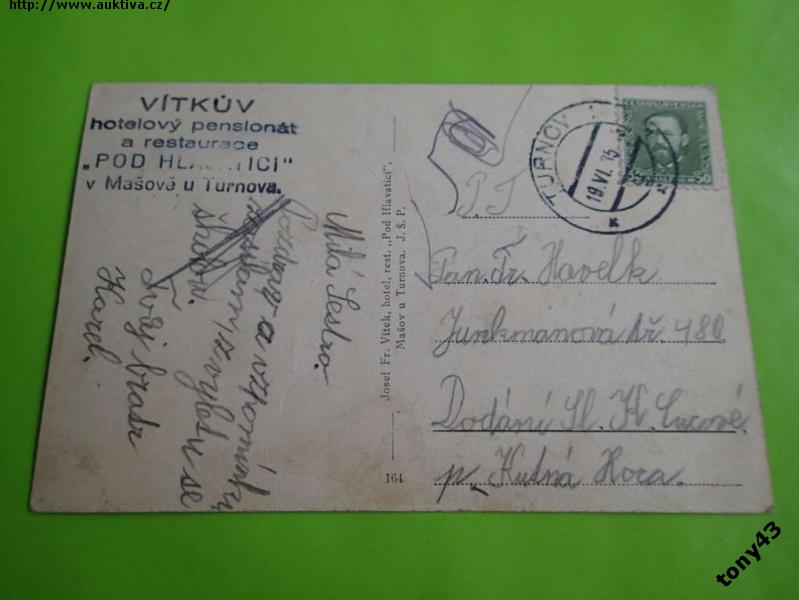 http://www.auktiva.cz/
VÍTKŮV
hotelový pensionát
a restaurace
„POD HLAVATICÍ"
v Mašově u Turnova.
Milá Sestro.
Pozdrav a vzpomínku
zasílám z výletu se
školou.
Tvůj bratr
Karel.
Josef Fr. Vítek, hotel, rest. „Pod Hlavaticí"
Mašov u Turnova. J. Š. P.
164
TURNOV
19.VI.35
ČESKOSLOVENSKO
50
P. T.
Pan. Fr. Havelk
Junkmanová tř. 480
Dodání Sl. K.
p. Kutná Hora.
tony43